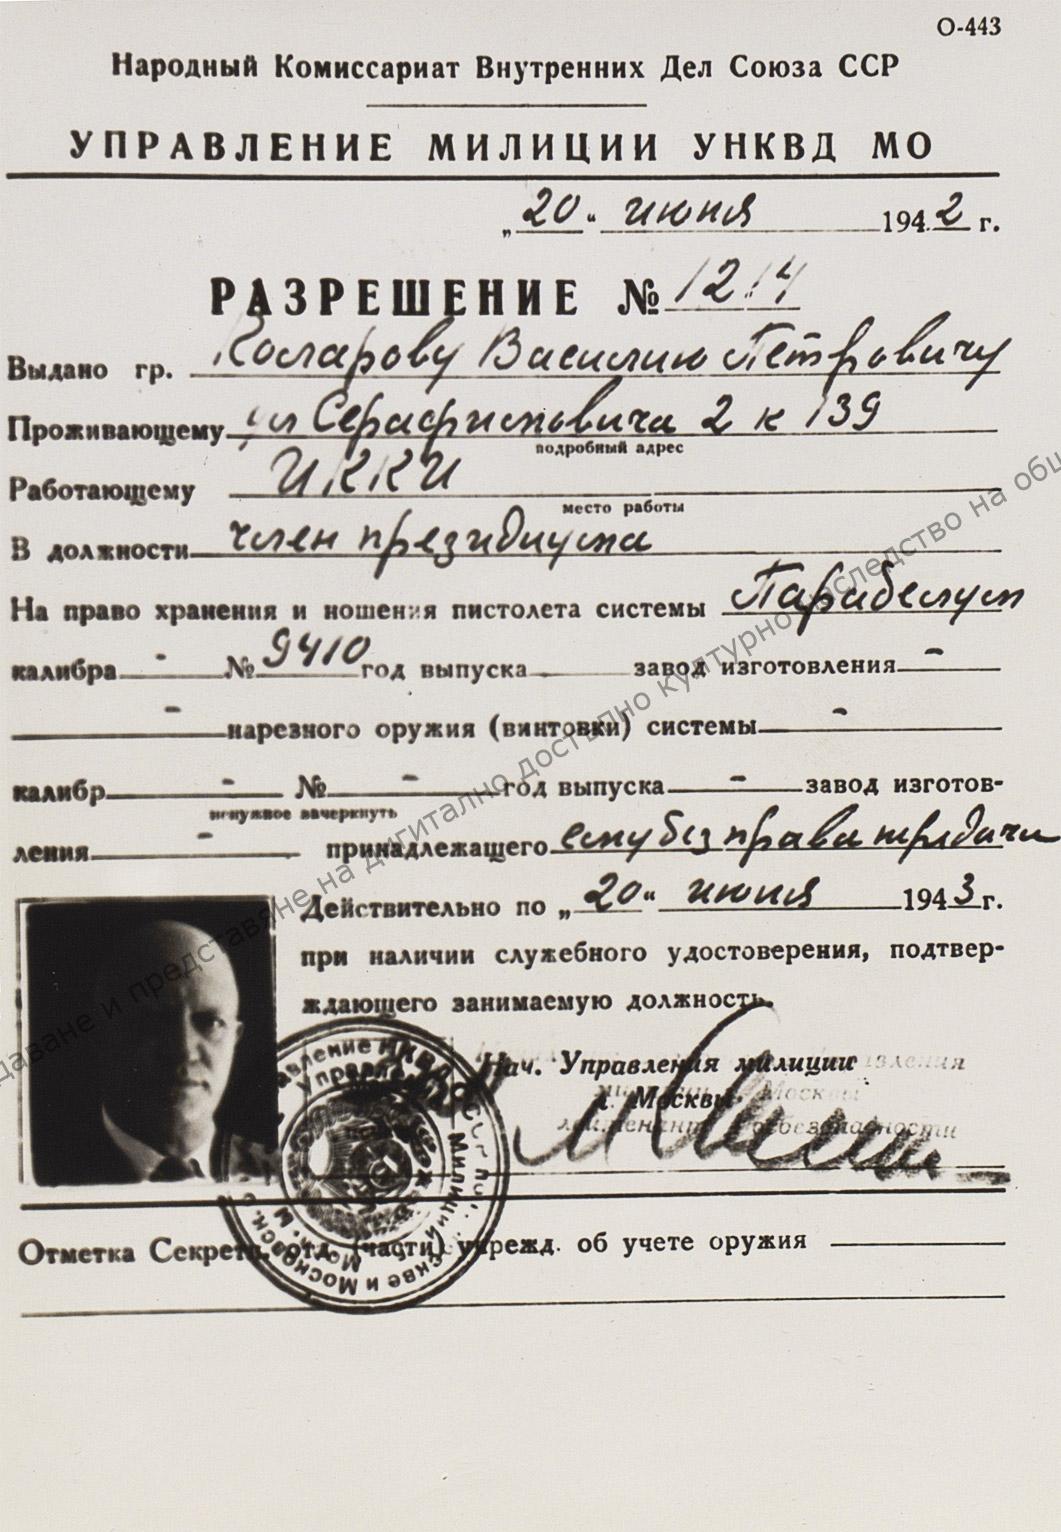 О-443
Народный Комиссариат Внутренних Дел Союза ССР
УПРАВЛЕНИЕ МИЛИЦИИ УНКВД МО
„20“ июня 1942 г.
РАЗРЕШЕНИЕ № 1214
Выдано гр. Коларову Василию Петровичу
Проживающему ул Серафимовича 2 к 139
подробный адрес
Работающему ИККИ
место работы
В должности член президиума
На право хранения и ношения пистолета системы Парабелум
калибра - № 9410 год выпуска завод изготовления -
- нарезного оружия (винтовки) системы -
калибр - № - год выпуска - завод изготов-
ненужное зачеркнуть
ления - принадлежащего ему без права передачи
Действительно по „20“ июня 1943 г.
при наличии служебного удостоверения, подтвер-
ждающего занимаемую должность.
Нач. Управления милиции
г. Москвы
Отметка Секретн. отд. (части) учрежд. об учете оружия
даване и представяне на дигитално достъпно културно наследство на общ